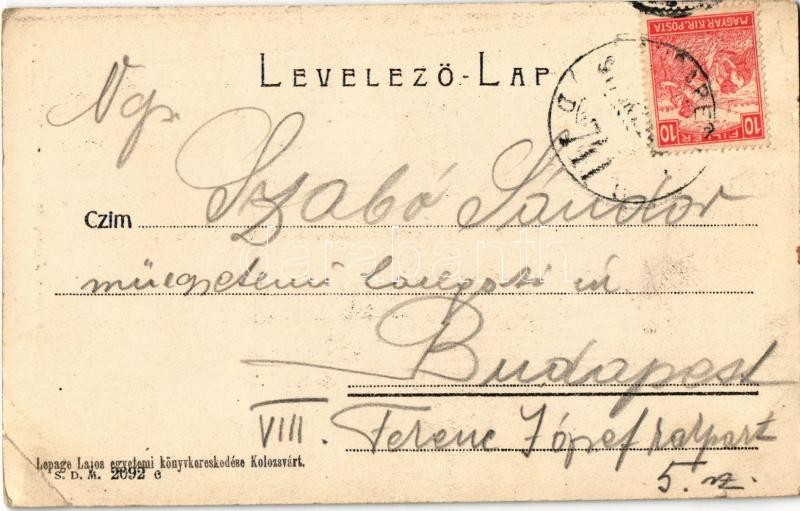 LEVELEZŐ-LAP
MAGYAR KIR. POSTA
10 FILLÉR 10
Ngs.
Czim Szabó Sándor
műegyetemi hallgató úr
Budapest
VIII. Ferenc József rakpart
5. sz.
Lepage Lajos egyetemi könyvkereskedése Kolozsvárt.
S. D. M. 2092 G
darabanth.com